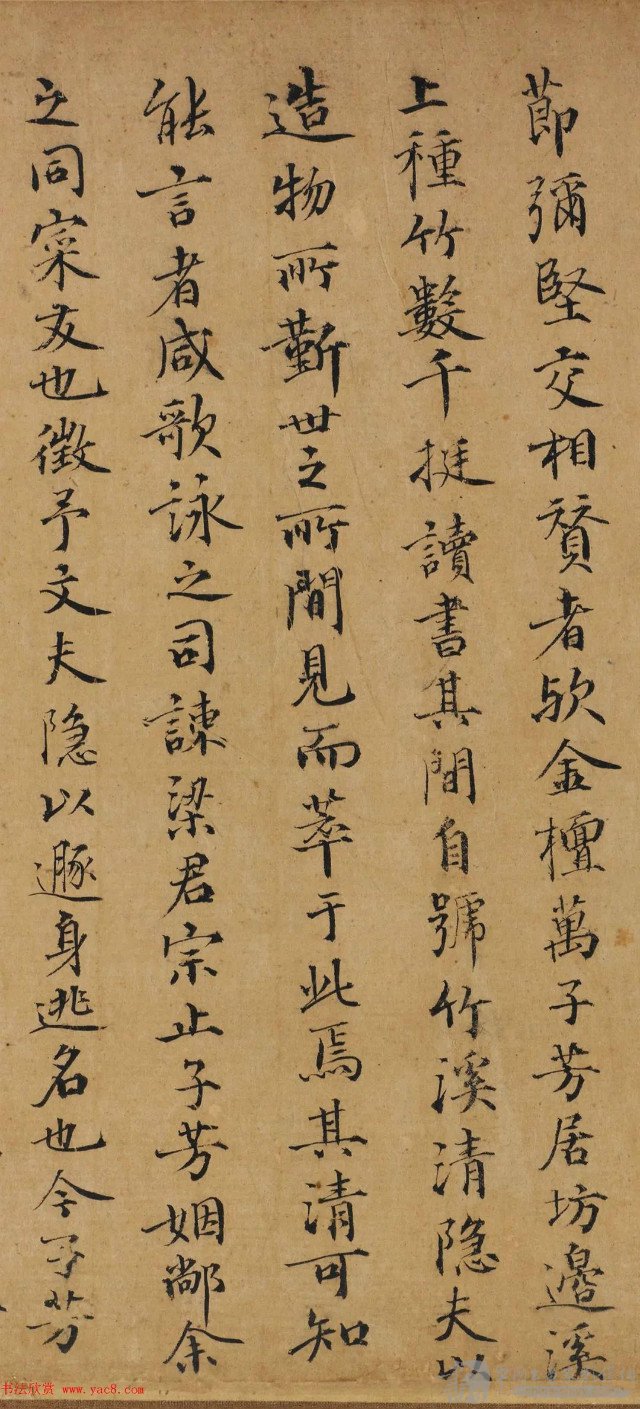 節彌堅交相贊者歟金壇萬子芳居坊邊溪
上種竹數千挺讀書其間自號竹溪清隱夫以
造物所蘄世之所間見而萃于此焉其清可知
能言者咸歌詠之司諫梁君宗止子芳姻鄰余
之同寀友也徵予文夫隐以遯身逃名也今子芳
书法欣赏 www.yac8.com